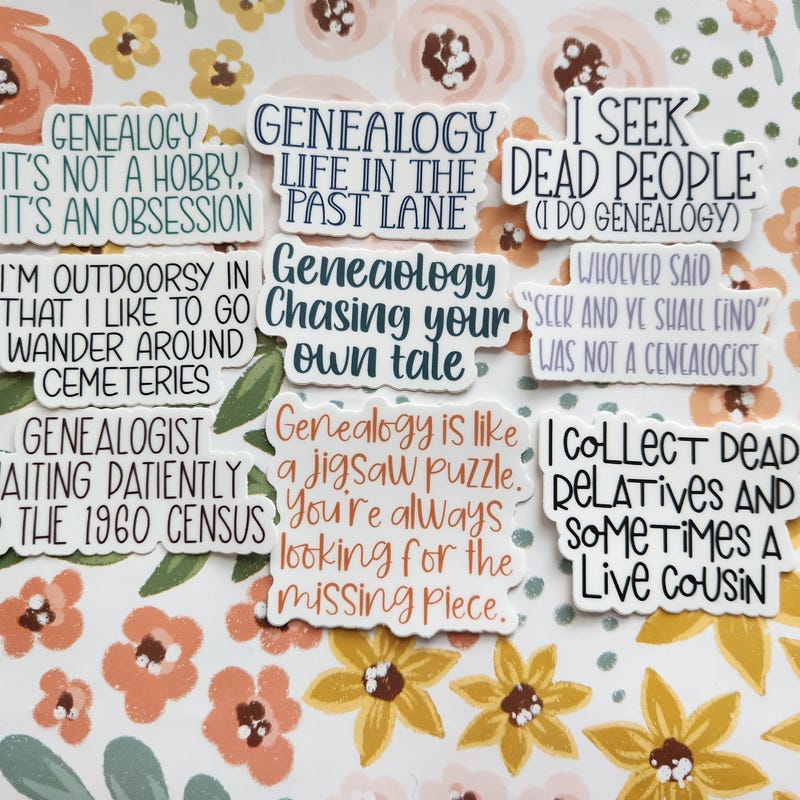 GENEALOGY
IT'S NOT A HOBBY,
IT'S AN OBSESSION
GENEALOGY
LIFE IN THE
PAST LANE
I SEEK
DEAD PEOPLE
(I DO GENEALOGY)
I'M OUTDOORSY IN
THAT I LIKE TO GO
WANDER AROUND
CEMETERIES
Geneaology
Chasing your
own tale
WHOEVER SAID
"SEEK AND YE SHALL FIND"
WAS NOT A GENEALOGIST
GENEALOGIST
AITING PATIENTLY
THE 1960 CENSUS
Genealogy is like
a jigsaw puzzle.
You're always
looking for the
missing piece.
I COLLECT DEAD
RELATIVES AND
SOMETIMES A
LIVE COUSIN